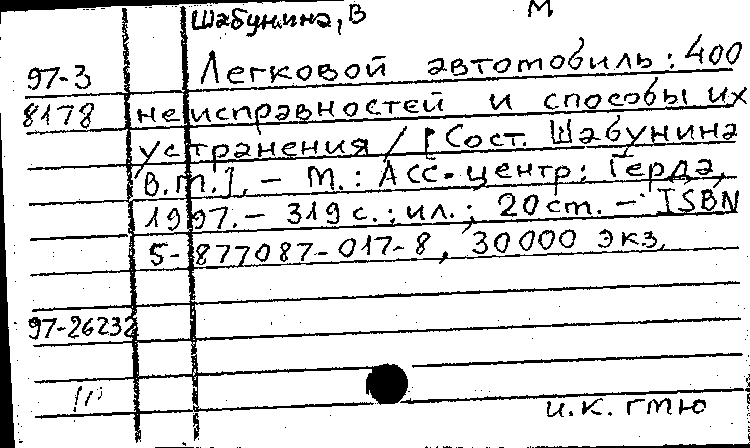 Шабунина, В М
97-3 Легковой автомобиль: 400
8178 неисправностей и способы их
устранения / [Сост. Шабунина
В.М.]. - М.: Асс-центр: Герда,
1997. - 319 с.: ил.; 20 см. - ISBN
5-877087-017-8, 30000 экз.
97-26232
и.к. гмю